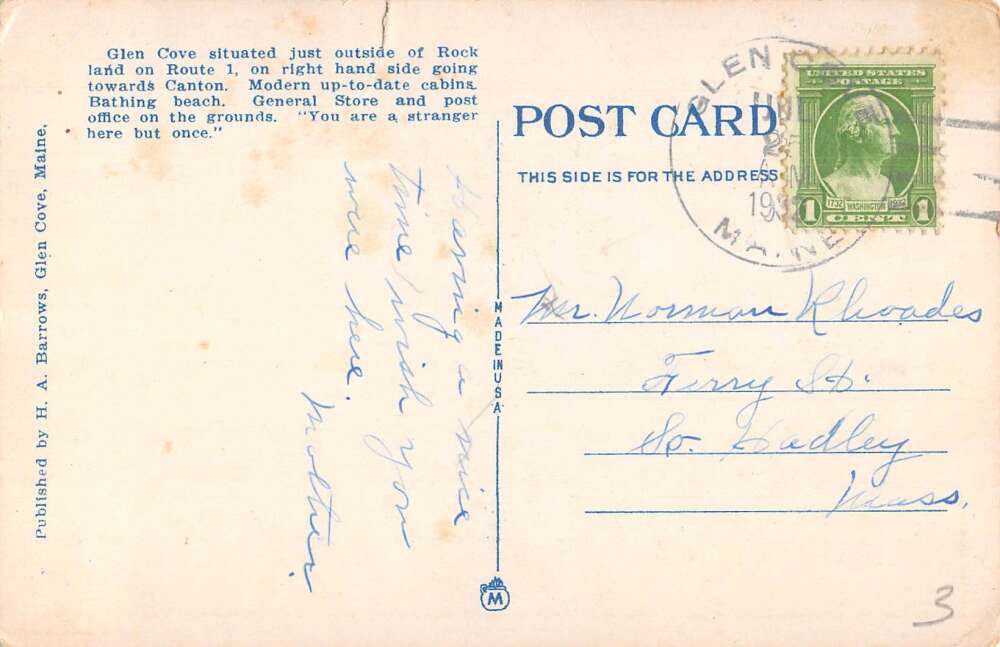 Glen Cove situated just outside of Rock
land on Route 1, on right hand side going
towards Canton. Modern up-to-date cabins.
Bathing beach. General Store and post
office on the grounds. "You are a stranger
here but once."
Published by H. A. Barrows, Glen Cove, Maine.
Having a nice
time wish you
were here.
Mother.
MADE IN USA
M
POST CARD
THIS SIDE IS FOR THE ADDRESS
GLEN
MAINE
UNITED STATES
POSTAGE
1732 WASHINGTON 1932
1 CENT 1
Mr. Norman Rhoades
Ferry St.
So. Hadley
Mass.
3